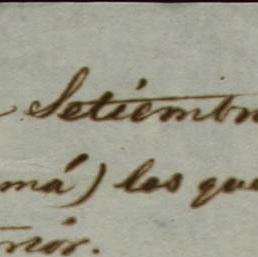 Setiembr
má) los que
rior.